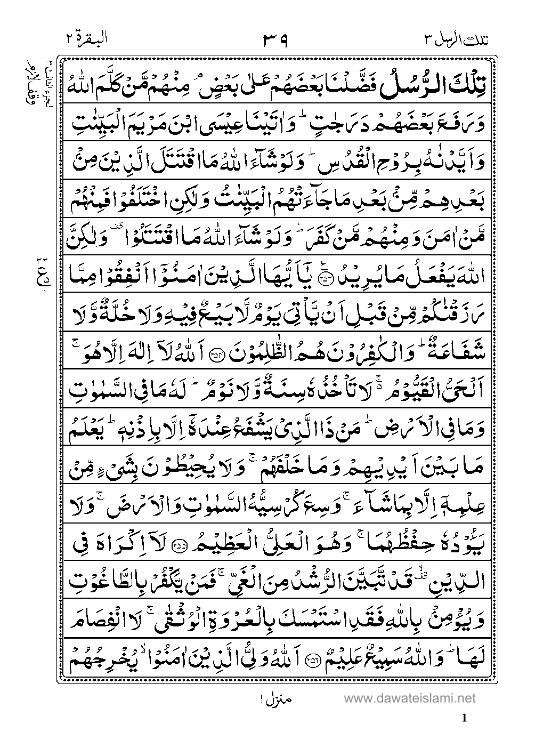 تلك الرسل ٣ ٣٩ البقرة ٢
تِلْكَ الرُّسُلُ فَضَّلْنَا بَعْضَهُمْ عَلٰى بَعْضٍ ۘ مِنْهُمْ مَّنْ كَلَّمَ اللّٰهُ
وَرَفَعَ بَعْضَهُمْ دَرَجٰتٍ ؕ وَاٰتَيْنَا عِيْسَى ابْنَ مَرْيَمَ الْبَيِّنٰتِ
وَاَيَّدْنٰهُ بِرُوْحِ الْقُدُسِ ؕ وَلَوْ شَآءَ اللّٰهُ مَا اقْتَتَلَ الَّذِيْنَ مِنْۢ
بَعْدِهِمْ مِّنْۢ بَعْدِ مَا جَآءَتْهُمُ الْبَيِّنٰتُ وَلٰكِنِ اخْتَلَفُوْا فَمِنْهُمْ
مَّنْ اٰمَنَ وَمِنْهُمْ مَّنْ كَفَرَ ؕ وَلَوْ شَآءَ اللّٰهُ مَا اقْتَتَلُوْا ۟ وَلٰكِنَّ
اللّٰهَ يَفْعَلُ مَا يُرِيْدُ ﴿٢٥٣﴾ يٰۤاَيُّهَا الَّذِيْنَ اٰمَنُوْۤا اَنْفِقُوْا مِمَّا
رَزَقْنٰكُمْ مِّنْ قَبْلِ اَنْ يَّاْتِيَ يَوْمٌ لَّا بَيْعٌ فِيْهِ وَلَا خُلَّةٌ وَّلَا
شَفَاعَةٌ ؕ وَالْكٰفِرُوْنَ هُمُ الظّٰلِمُوْنَ ﴿٢٥٤﴾ اَللّٰهُ لَاۤ اِلٰهَ اِلَّا هُوَ ۚ
اَلْحَيُّ الْقَيُّوْمُ ۬ۚ لَا تَاْخُذُهٗ سِنَةٌ وَّلَا نَوْمٌ ؕ لَهٗ مَا فِي السَّمٰوٰتِ
وَمَا فِي الْاَرْضِ ؕ مَنْ ذَا الَّذِيْ يَشْفَعُ عِنْدَهٗۤ اِلَّا بِاِذْنِهٖ ؕ يَعْلَمُ
مَا بَيْنَ اَيْدِيْهِمْ وَمَا خَلْفَهُمْ ۚ وَلَا يُحِيْطُوْنَ بِشَيْءٍ مِّنْ
عِلْمِهٖۤ اِلَّا بِمَا شَآءَ ۚ وَسِعَ كُرْسِيُّهُ السَّمٰوٰتِ وَالْاَرْضَ ۚ وَلَا
يَـُٔوْدُهٗ حِفْظُهُمَا ۚ وَهُوَ الْعَلِيُّ الْعَظِيْمُ ﴿٢٥٥﴾ لَاۤ اِكْرَاهَ فِي
الدِّيْنِ ۟ۙ قَدْ تَّبَيَّنَ الرُّشْدُ مِنَ الْغَيِّ ۚ فَمَنْ يَّكْفُرْ بِالطَّاغُوْتِ
وَيُؤْمِنْۢ بِاللّٰهِ فَقَدِ اسْتَمْسَكَ بِالْعُرْوَةِ الْوُثْقٰى ۗ لَا انْفِصَامَ
لَهَا ؕ وَاللّٰهُ سَمِيْعٌ عَلِيْمٌ ﴿٢٥٦﴾ اَللّٰهُ وَلِيُّ الَّذِيْنَ اٰمَنُوْا ۙ يُخْرِجُهُمْ
منزل ١
www.dawateislami.net
1